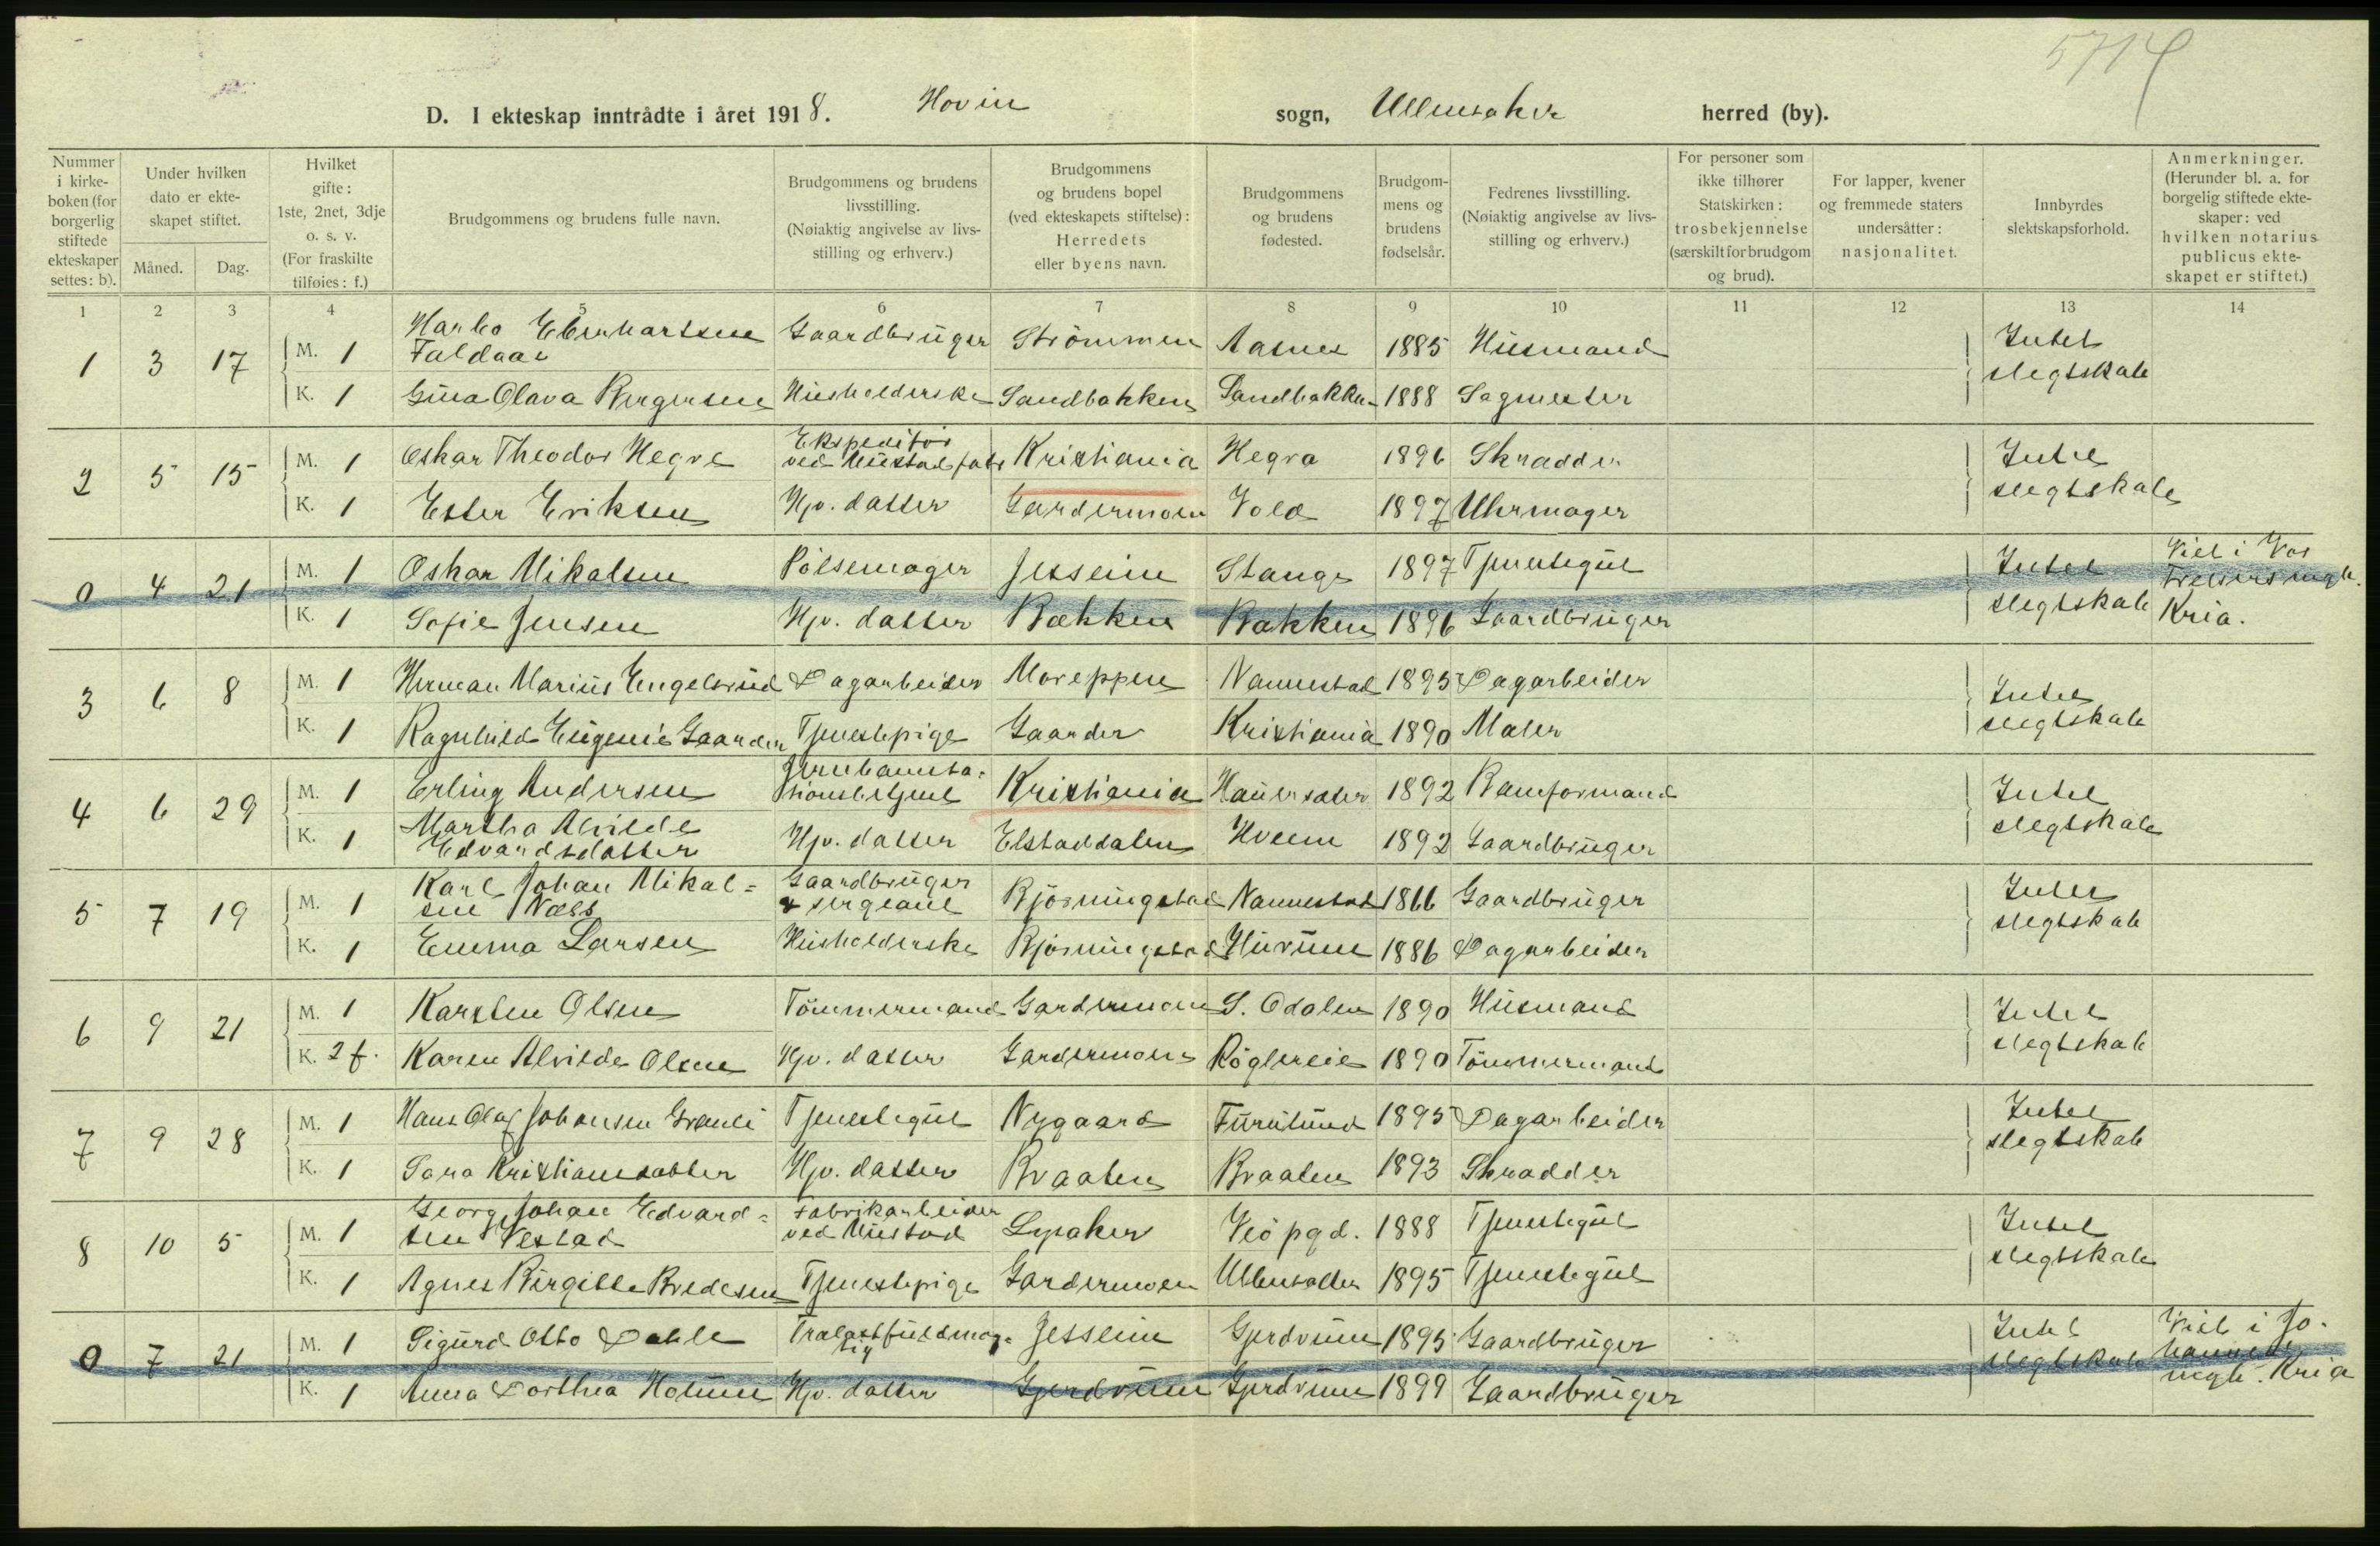 5714
D. I ekteskap inntrådte i året 1918. Hovin sogn, Ullensaker herred (by).
Nummer i kirkeboken (for borgerlig stiftede ekteskaper settes: b).
Under hvilken dato er ekteskapet stiftet.
Måned. Dag.
Hvilket gifte: 1ste, 2net, 3dje o. s. v. (For fraskilte tilføies: f.)
Brudgommens og brudens fulle navn.
Brudgommens og brudens livsstilling. (Nøiaktig angivelse av livsstilling og erhverv.)
Brudgommens og brudens bopel (ved ekteskapets stiftelse): Herredets eller byens navn.
Brudgommens og brudens fødested.
Brudgommens og brudens fødselsår.
Fedrenes livsstilling. (Nøiaktig angivelse av livsstilling og erhverv.)
For personer som ikke tilhører Statskirken: trosbekjennelse (særskilt for brudgom og brud).
For lapper, kvener og fremmede staters undersåtter: nasjonalitet.
Innbyrdes slektskapsforhold.
Anmerkninger. (Herunder bl. a. for borgelig stiftede ekteskaper: ved hvilken notarius publicus ekteskapet er stiftet.)
1 2 3 4 5 6 7 8 9 10 11 12 13 14
1 3 17 M. 1 Harbo Ebenhartsen Faldaas Gaardbruger Strömmen Aasnes 1885 Husmand Intet slegtskab
K. 1 Gina Olava Bergersen Husholderske Sandbakken Sandbakken 1888 Sagmester
2 5 15 M. 1 Oskar Theodor Hegre Ekspeditör ved Mustads fabr Kristiania Hegra 1896 Skrædder Intet slegtskab
K. 1 Ester Eriksen Hjv. datter Gardermoen Vold 1897 Uhrmager
0 4 21 M. 1 Oskar Mikalsen Pölsemager Jesseim Stange 1897 Tjenestegut Intet slegtskab Viet i Vor Frelsers mgh. Kria.
K. 1 Sofie Jensen Hjv. datter Bakken Bakken 1896 Gaardbruger
3 6 8 M. 1 Herman Marius Engelsrud Dagarbeider Moreppen Nannestad 1895 Dagarbeider Intet slegtskab
K. 1 Ragnhild Eugenie Gaarder Tjenestepige Gaarder Kristiania 1890 Maler
4 6 29 M. 1 Erling Andersen Jernbanestationsbetjent Kristiania Hauersæter 1892 Baneformand Intet slegtskab
K. 1 Martha Alvilde Edvardsdatter Hjv. datter Elstaddalen Hveem 1892 Gaardbruger
5 7 19 M. 1 Karl Johan Mikalsen Næss Gaardbruger & sergeant Björningstad Nannestad 1866 Gaardbruger Intet slegtskab
K. 1 Emma Larsen Husholderske Björningstad Hurum 1886 Dagarbeider
6 9 21 M. 1 Karsten Olsen Tömmermand Gardermoen S. Odalen 1890 Husmand Intet slegtskab
K. 2 f. Karen Alvilde Olsen Hjv. datter Gardermoen Röglereie 1890 Tömmermand
7 9 28 M. 1 Hans Olaf Johansen Granli Tjenestegut Nygaard Furulund 1895 Dagarbeider Intet slegtskab
K. 1 Sara Kristiansdatter Hjv. datter Braaten Braaten 1893 Skrædder
8 10 5 M. 1 Georg Johan Edvardsen Vestad Fabrikarbeider ved Mustad Lysaker Veö pgd. 1888 Tjenestegut Intet slegtskab
K. 1 Agnes Birgitte Bredesen Tjenestepige Gardermoen Ullensaker 1895 Tjenestegut
0 7 21 M. 1 Sigurd Otto Dahle Trælastfuldmægtig Jesseim Gjerdrum 1895 Gaardbruger Intet slegtskab Viet i Johannes mgh. Kria
K. 1 Anna Dorthea Holum Hjv. datter Gjerdrum Gjerdrum 1899 Gaardbruger